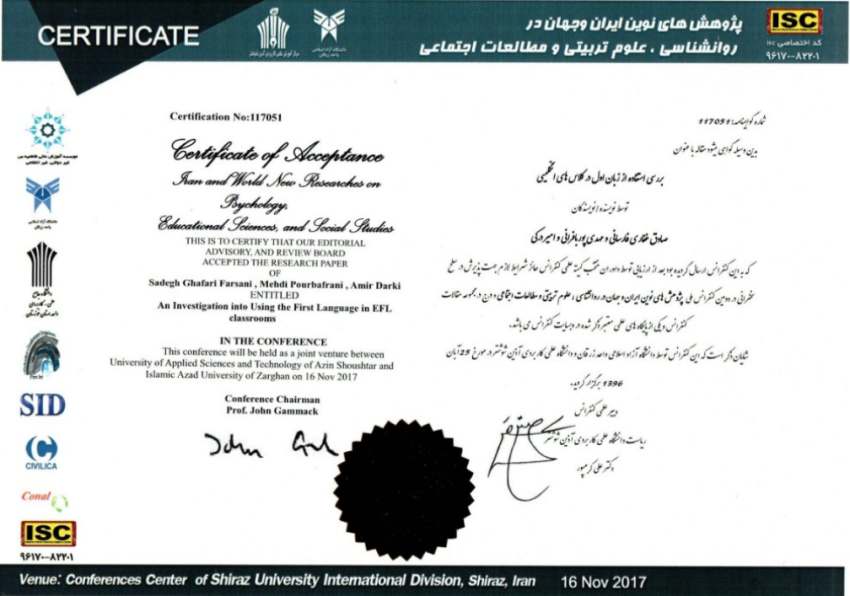 CERTIFICATE
پژوهش های نوین ایران وجهان در
روانشناسی ، علوم تربیتی و مطالعات اجتماعی
ISC
کد اختصاصی ISC
۹۶۱۷۰-۸۲۲۰۱
Certification No:117051
Certificate of Acceptance
Iran and World New Researches on
Psychology,
Educational Sciences, and Social Studies
THIS IS TO CERTIFY THAT OUR EDITORIAL
ADVISORY, AND REVIEW BOARD
ACCEPTED THE RESEARCH PAPER
OF
Sadegh Ghafari Farsani , Mehdi Pourbafrani , Amir Darki
ENTITLED
An Investigation into Using the First Language in EFL
classrooms
IN THE CONFERENCE
This conference will be held as a joint venture between
University of Applied Sciences and Technology of Azin Shoushtar and
Islamic Azad University of Zarghan on 16 Nov 2017
Conference Chairman
Prof. John Gammack
شماره گواهینامه: 117051
بدین وسیله گواهی میشود مقاله با عنوان
بررسی استفاده از زبان اول در کلاس های انگلیسی
توسط نویسنده/نویسندگان
صادق غفاری فارسانی و مهدی پوربافرانی و امیر درکی
که به این کنفرانس ارسال گردیده بود بعد از ارزیابی توسط داوران منتخب کمیته علمی کنفرانس حائز شرایط لازم جهت پذیرش در سطح
سخنرانی در دومین کنفرانس ملی پژوهش های نوین ایران و جهان در روانشناسی ، علوم تربیتی و مطالعات اجتماعی و درج در مجموعه مقالات
کنفرانس و یکی از پایگاه های علمی معتبر ذکر شده در وبسایت کنفرانس می باشد.
شایان ذکر است که این کنفرانس توسط دانشگاه آزاد اسلامی واحد زرقان و دانشگاه علمی کاربردی آذین شوشتر در مورخ 25 آبان
1396 برگزار گردید.
دبیر علمی کنفرانس
ریاست دانشگاه علمی کاربردی آذین شوشتر
دکتر علی کرمپور
SID
CIVILICA
Conal
ISC
۹۶۱۷۰-۸۲۲۰۱
Venue: Conferences Center of Shiraz University International Division, Shiraz, Iran 16 Nov 2017